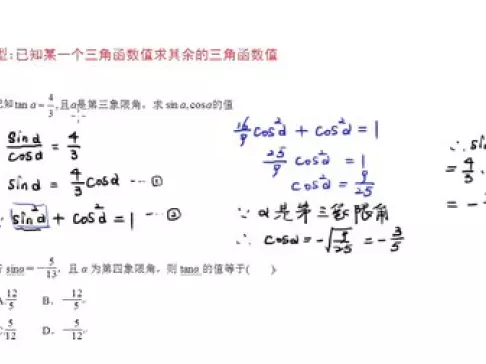 型:已知某一个三角函数值求其余的三角函数值
已知tan α=4/3,且α是第三象限角,求 sin α,cosα的值
sinα/cosα = 4/3
sinα = 4/3 cosα --- ①
∵ sin²α + cos²α = 1 --- ②
16/9 cos²α + cos²α = 1
25/9 cos²α = 1
cos²α = 9/25
∵ α是第三象限角
∴ cosα = -√(9/25) = -3/5
∴
= 4/3
= -
sinα=-5/13, 且 α 为第四象限角, 则 tanα 的值等于( )
12/5 B. -12/5
5/12 D. -5/12